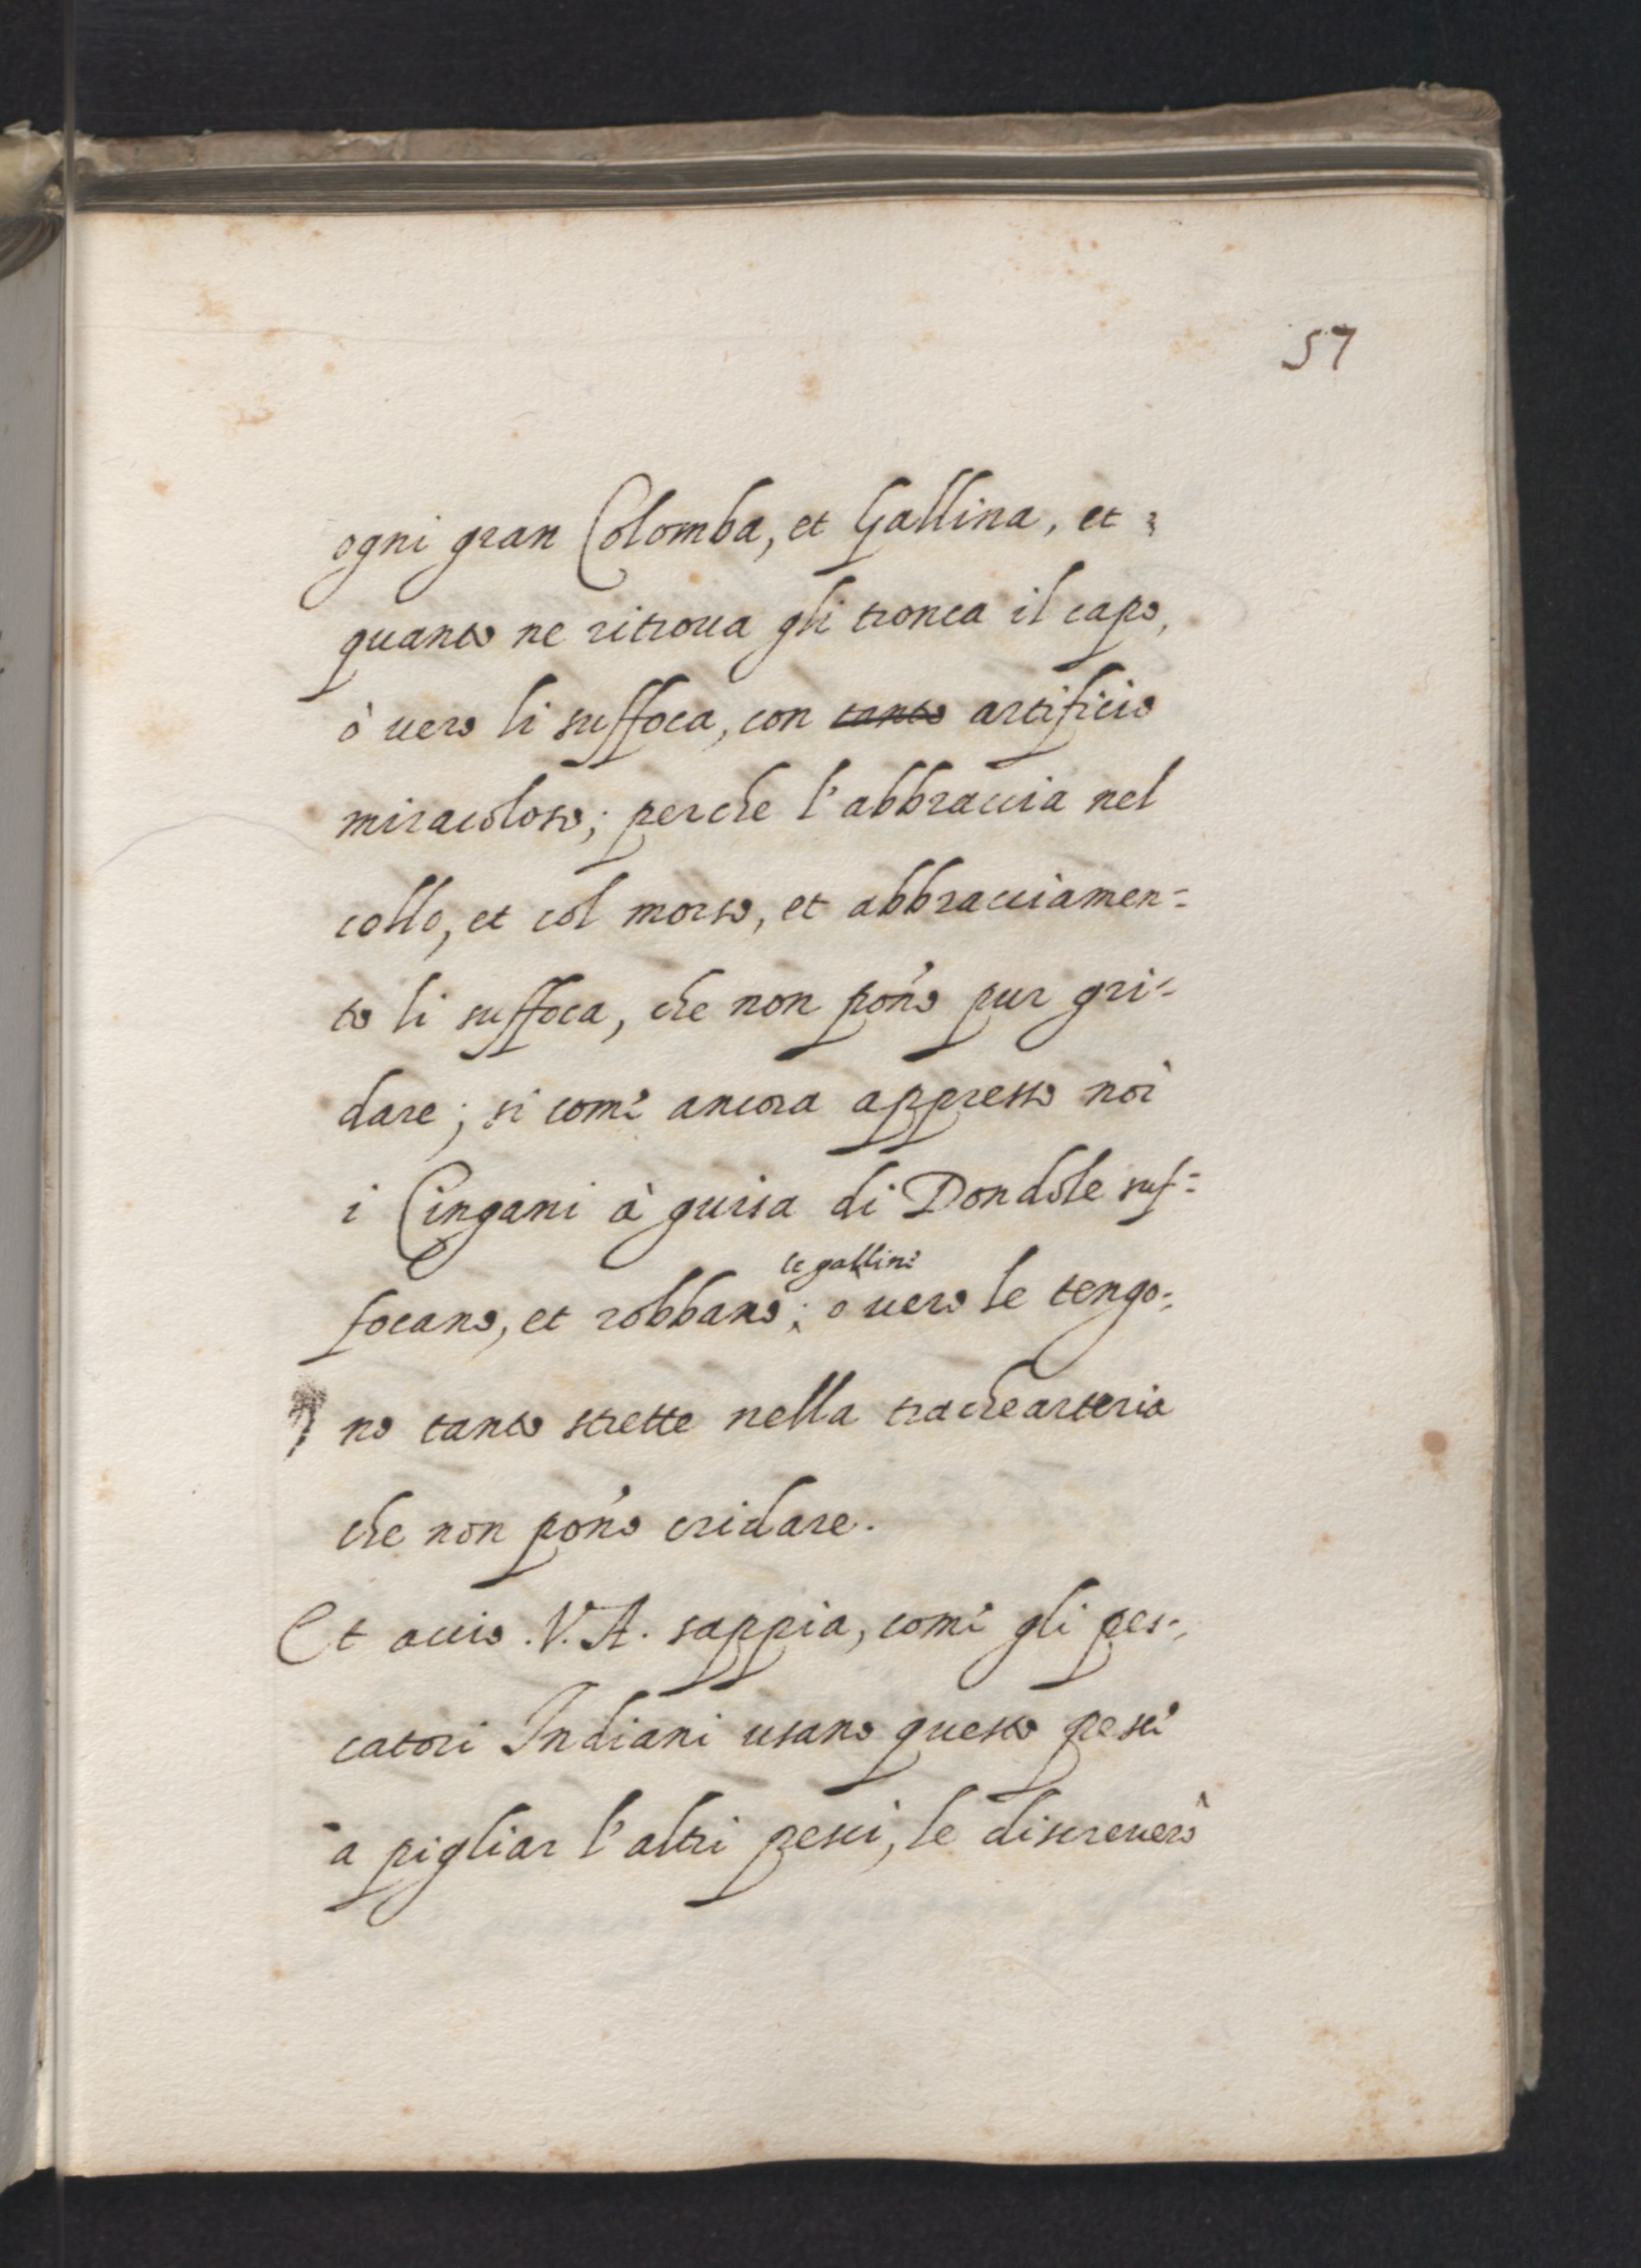 57
ogni gran Colomba, et Gallina, et
quanto ne ritroua gli tronca il capo,
ò uero li suffoca, con tanto artificio
miracoloso; perche l'abbraccia nel
collo, et col morso, et abbracciamen=
to li suffoca, che non pon̓o pur gri=
dare; si come ancora appresso noi
i Cingani à guisa di Dondole suf=
le galline
focano, et robbano; o uero le tengo=
no tanto strette nella trachearteria
che non pon̓o cridare.
Et accio .V.A. sappia, come gli pes=
catori Indiani usano questo pesce
a pigliar l'altri pesci, le discreuerò